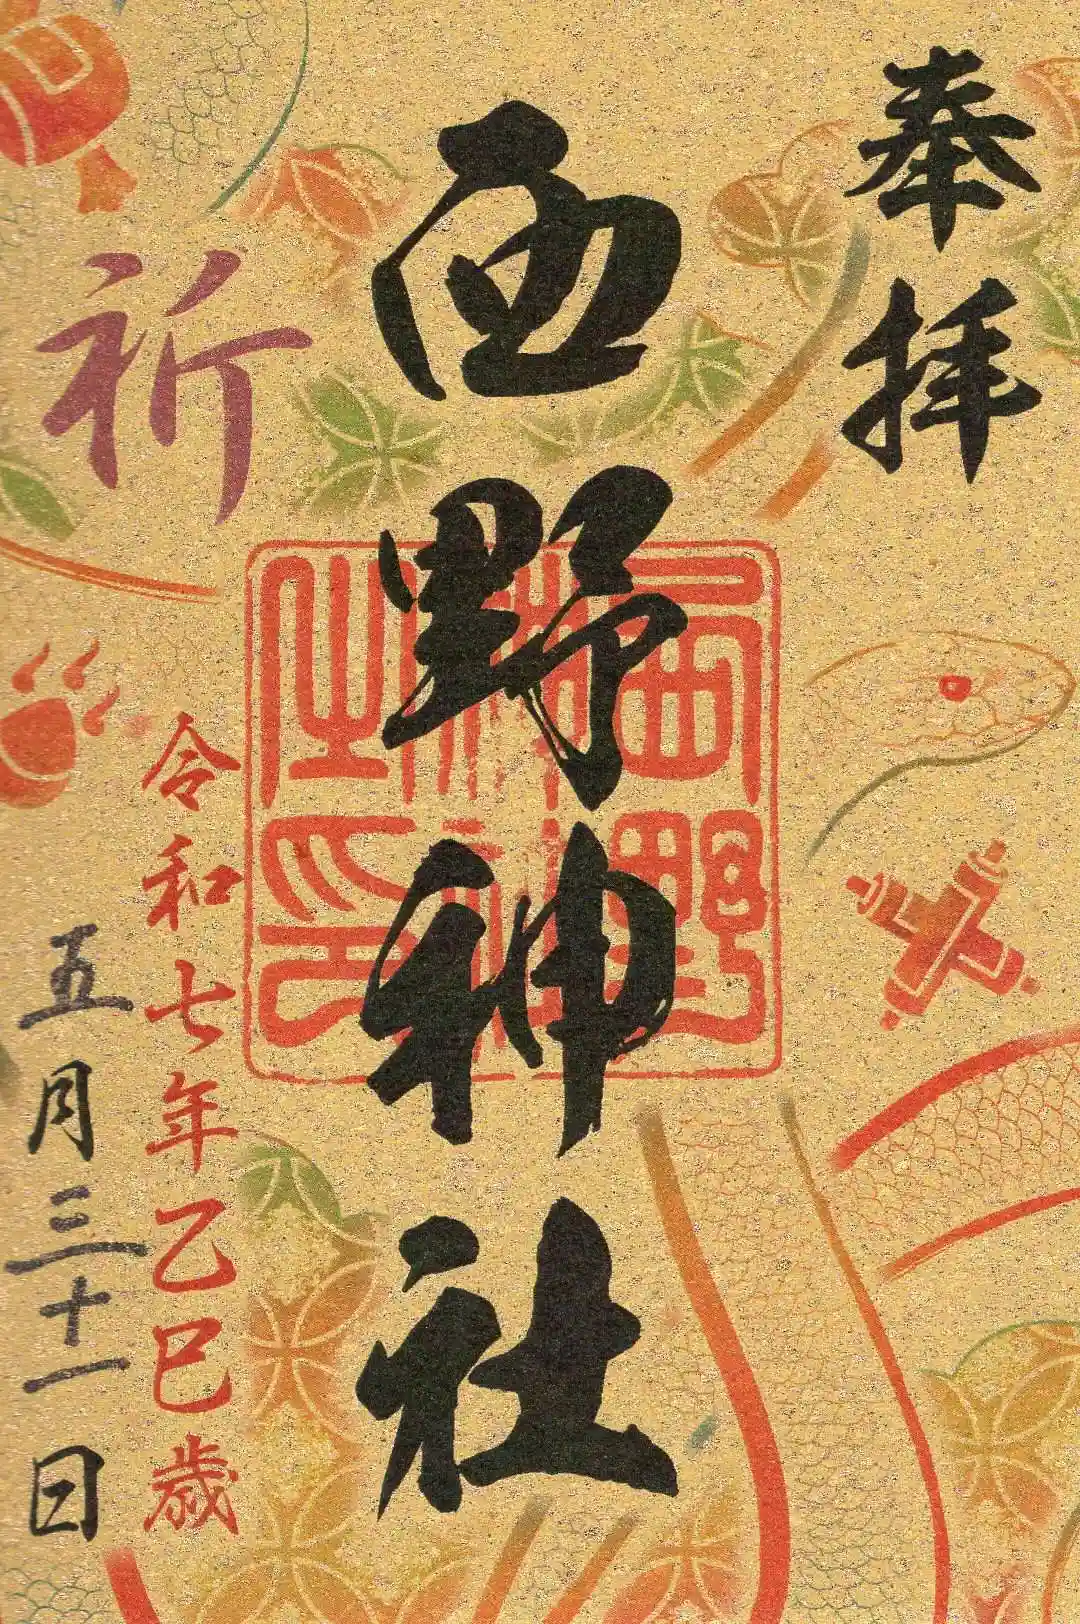 奉拝
西野神社
西野神社之印
祈
令和七年乙巳歳
五月三十一日